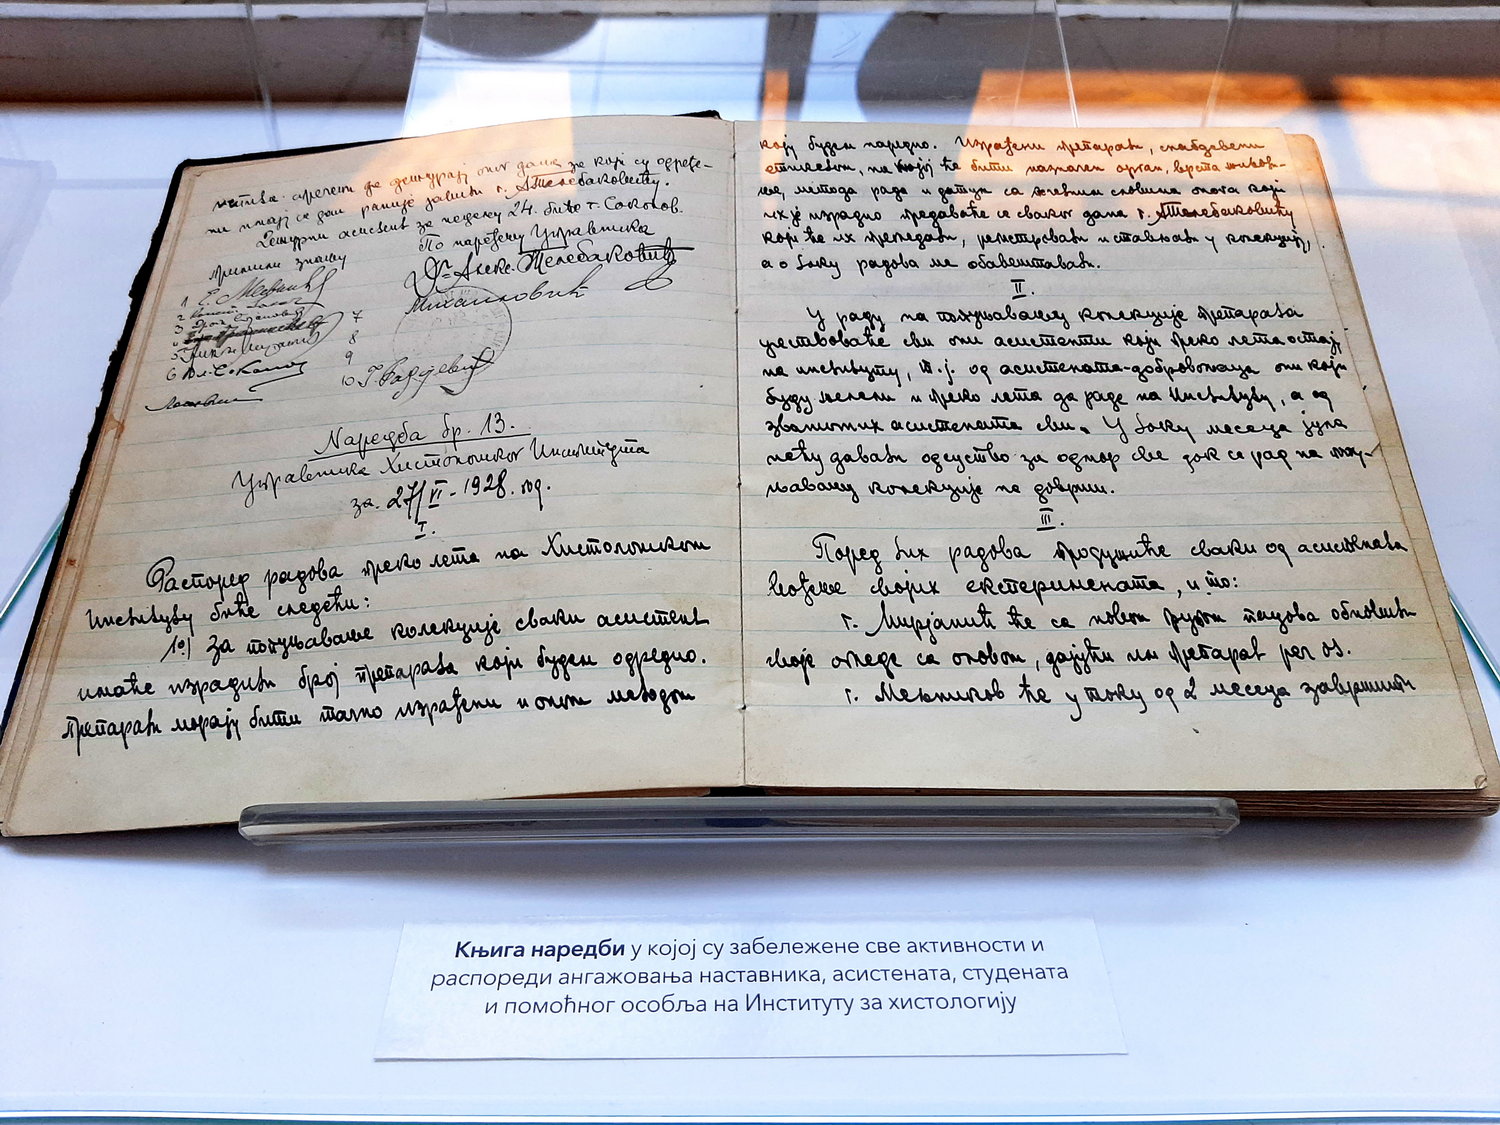 да дежурај оног дана за који су одређе-
ни имају се дан раније јавити г. А. Телебаковићу.
Дежурни асистент за недељу 24. биће г. Соколов.
По наређењу Управника
Др Алекс. Телебаковић
Примили знању
Михаиловић
1
2
3
5
6 Вл. Соколов
7
8
9
10 Г. Радојевић
Наредба бр. 13.
Управника Хистолошког Института
за 27/VI-1928. год.
I.
Распоред радова преко лета на Хистолошком
Институту биће следећи:
1º) За попуњавање колекције сваки асистент
имаће израдити број препарата који будем одредио.
Препарати морају бити тачно израђени и оном методом
коју будем наредио. Израђени препарати, снабдевени
етикетом, на којој ће бити назначен орган, врста животи-
ње, метода рада и датум са јасним словима онога који
их је израдио предаваће се сваког дана г. А. Телебаковићу
који ће их прегледати, регистровати и стављати у колекцију,
а о току радова ме обавештавати.
II.
У раду на попуњавању колекције препарата
учествоваће сви они асистенти који преко лета остају
на институту, т.ј. од асистената-добровољаца они који
буду желели и преко лета да раде на Институту, а од
званичних асистената сви. У току месеца јула
нећу давати одсуство за одмор све док се рад на попу-
њавању колекције не доврши.
III.
Поред тих радова продужиће сваки од асистената
вођење својих експеримената, и то:
г. Мирјанић ће са новом групом пацова обновити
своје огледе са оловом, дајући им препарат per os.
г. Мељников ће у току од 2 месеца завршити
Књига наредби у којој су забележене све активности и
распореди ангажовања наставника, асистената, студената
и помоћног особља на Институту за хистологију